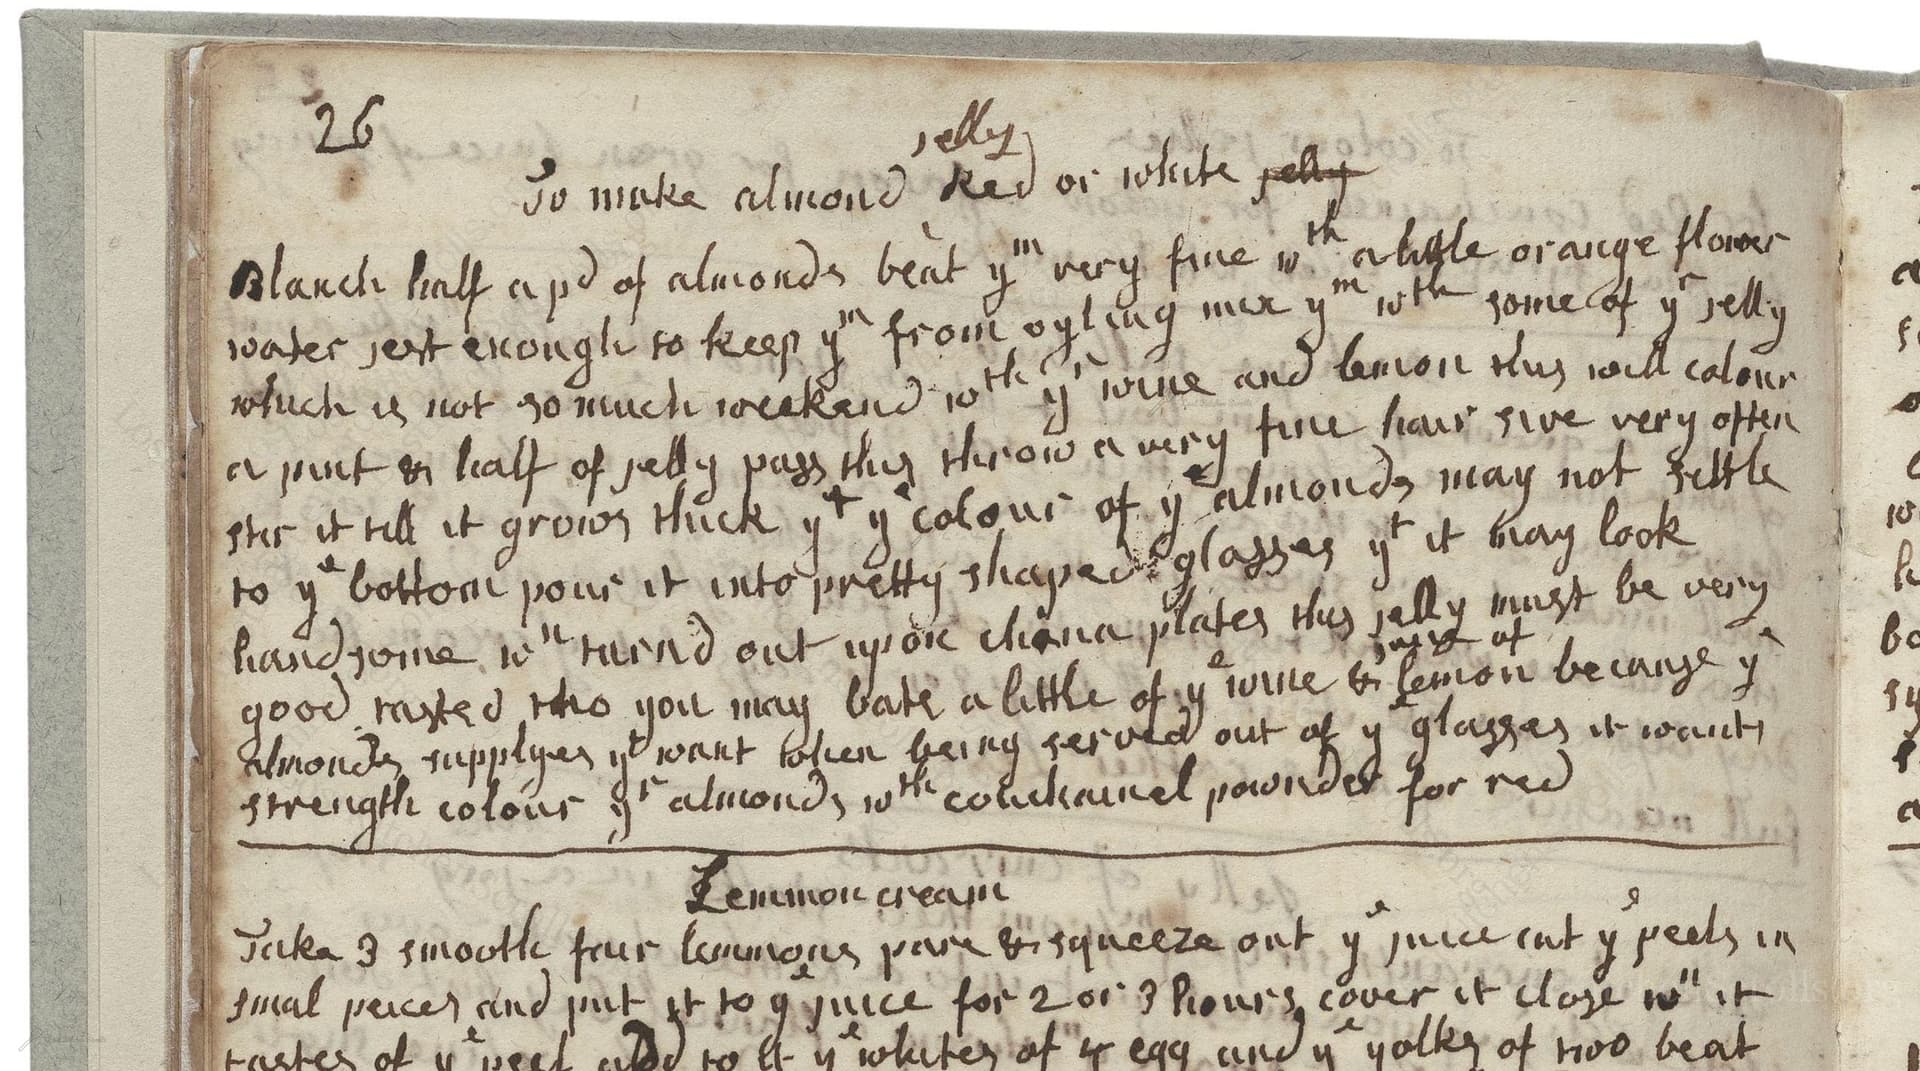 26
jelly
To make almond Red or white jelly
Blanch half a pd of almonds beat ym very fine wth a little orange flower
water jest enough to keep ym from oyling mix ym wth some of yr jelly
which is not so much weekend wth yr wine and lemon this will colour
a pint & half of jelly pass this throw a very fine hair sive very often
stir it till it grows thick yt ye colour of ye almonds may not settle
to ye bottom pour it into pretty shaped glasses yt it may look
handsome wn turnd out upon china plates this jelly must be very
good tasted tho you may bate a little of ye wine & lemon because ye
almonds supplyes yt want when being served out of ye glasses it wants
strength colour yr almonds wth couchaneel pownder for red
Lemmon cream
Take 3 smooth fair lemmons pare & squeeze out ye juice cut ye peels in
smal peices and put it to ye juice for 2 or 3 hours cover it close wn it
tastes of ye peel add to it ye whites of 4 egg and ye yolks of two beat